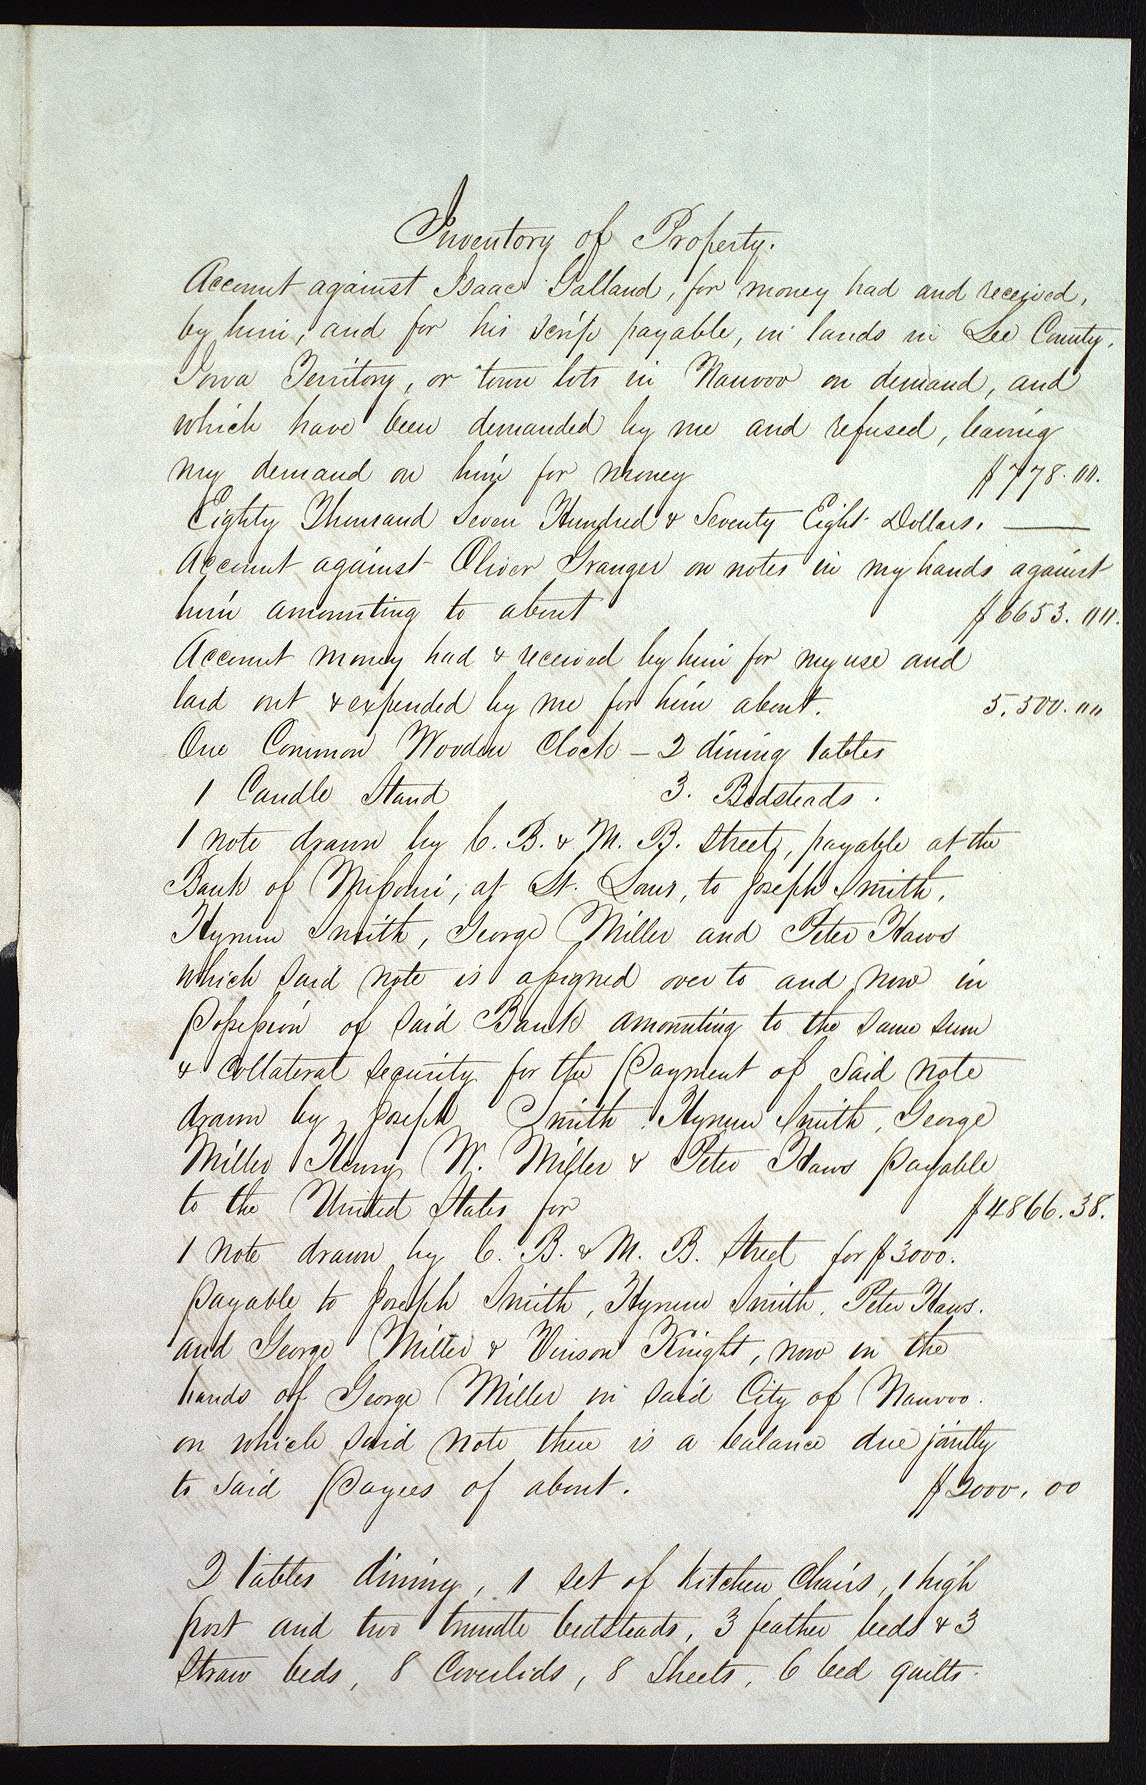 Inventory of Property.
Account against Isaac Galland, for money had and received,
by him, and for his scrip payable, in lands in Lee County,
Iowa Territory, or town lots in Nauvoo on demand, and
which have been demanded by me and refused, leaving
my demand on him for money $778.00.
Eighty Thousand Seven Hundred & Seventy Eight Dollars. —
Account against Oliver Granger on notes in my hands against
him amounting to about $6653.00.
Account money had & received by him for my use and
laid out & expended by me for him about. 5.500.00
One Common Wooden Clock – 2 dining tables
1 Candle Stand 3. Bedsteads.
1 note drawn by C. B. & M. B. Street, payable at the
Bank of Missouri, at St. Louis, to Joseph Smith,
Hyrum Smith, George Miller and Peter Haws
which said note is assigned over to and now in
possession of said Bank amounting to the same sum
& collateral security for the Payment of said note
drawn by Joseph Smith Hyrum Smith, George
Miller Henry W. Miller & Peter Haws payable
to the United States for $4866.38.
1 note drawn by C. B. & M. B. Street for $3000.
payable to Joseph Smith, Hyrum Smith, Peter Haws.
and George Miller & Vinson Knight, now in the
hands of George Miller in said City of Nauvoo.
on which said note there is a balance due jointly
to said Payees of about. $2000.00
2 tables dining, 1 set of kitchen chairs, 1 high
post and two trundle bedsteads, 3 feather beds & 3
straw beds, 8 Coverlids, 8 Sheets, 6 bed quilts.